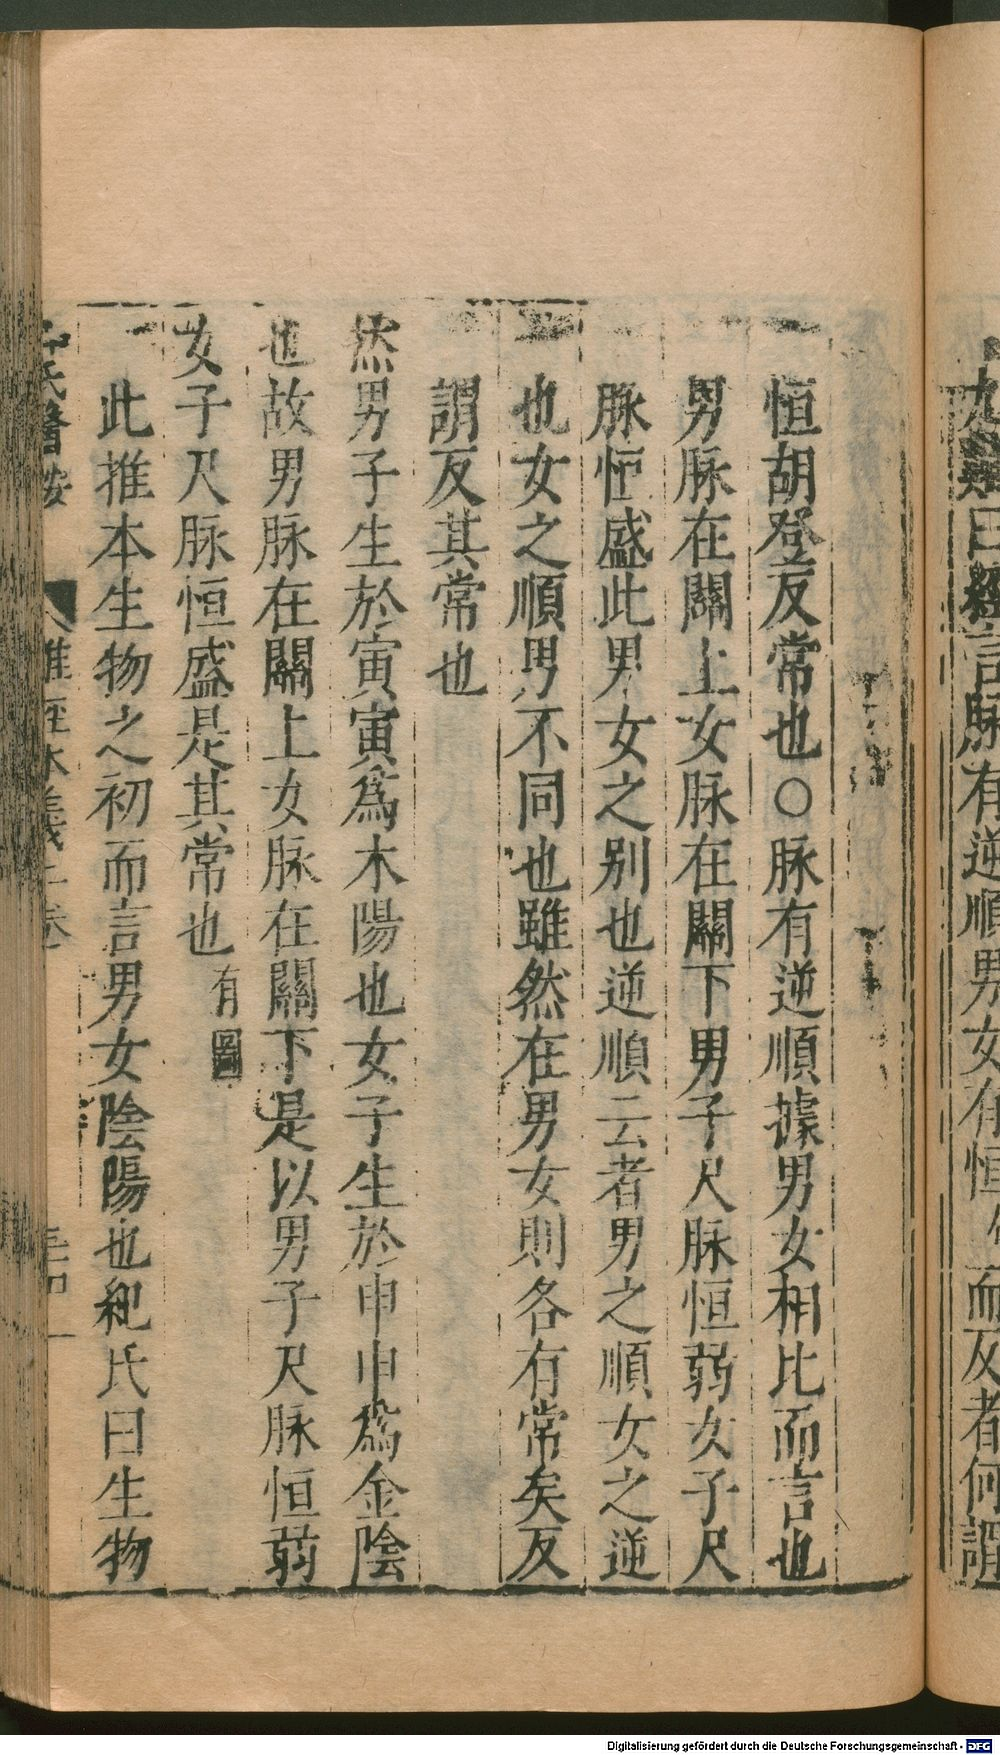 恒胡登反常也○脉有逆順據男女相比而言也
男脉在關上女脉在關下男子尺脉恒弱女子尺
脉恒盛此男女之别也逆順云者男之順女之逆
也女之順男不同也雖然在男女則各有常矣反
謂反其常也
然男子生於寅寅為木陽也女子生於申申為金陰
也故男脉在關上女脉在關下是以男子尺脉恒弱
女子尺脉恒盛是其常也有圖
此推本生物之初而言男女陰陽也紀氏曰生物
氏醫按
難經本義上卷
曰經言脉有逆順男女有恒而反者何謂
Digitalisierung gefördert durch die Deutsche Forschungsgemeinschaft - DFG